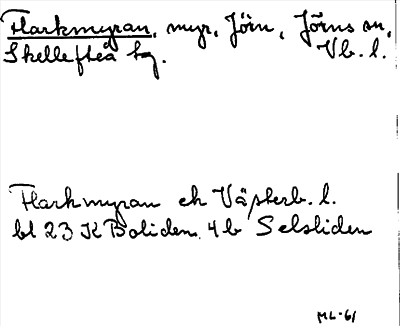 Flarkmyran, myr, Jörn, Jörns sn,
Skellefteå tg. Vb. l.
Flarkmyran ek Västerb. l.
bl 23 K Boliden. 4b Selsliden
ML-61